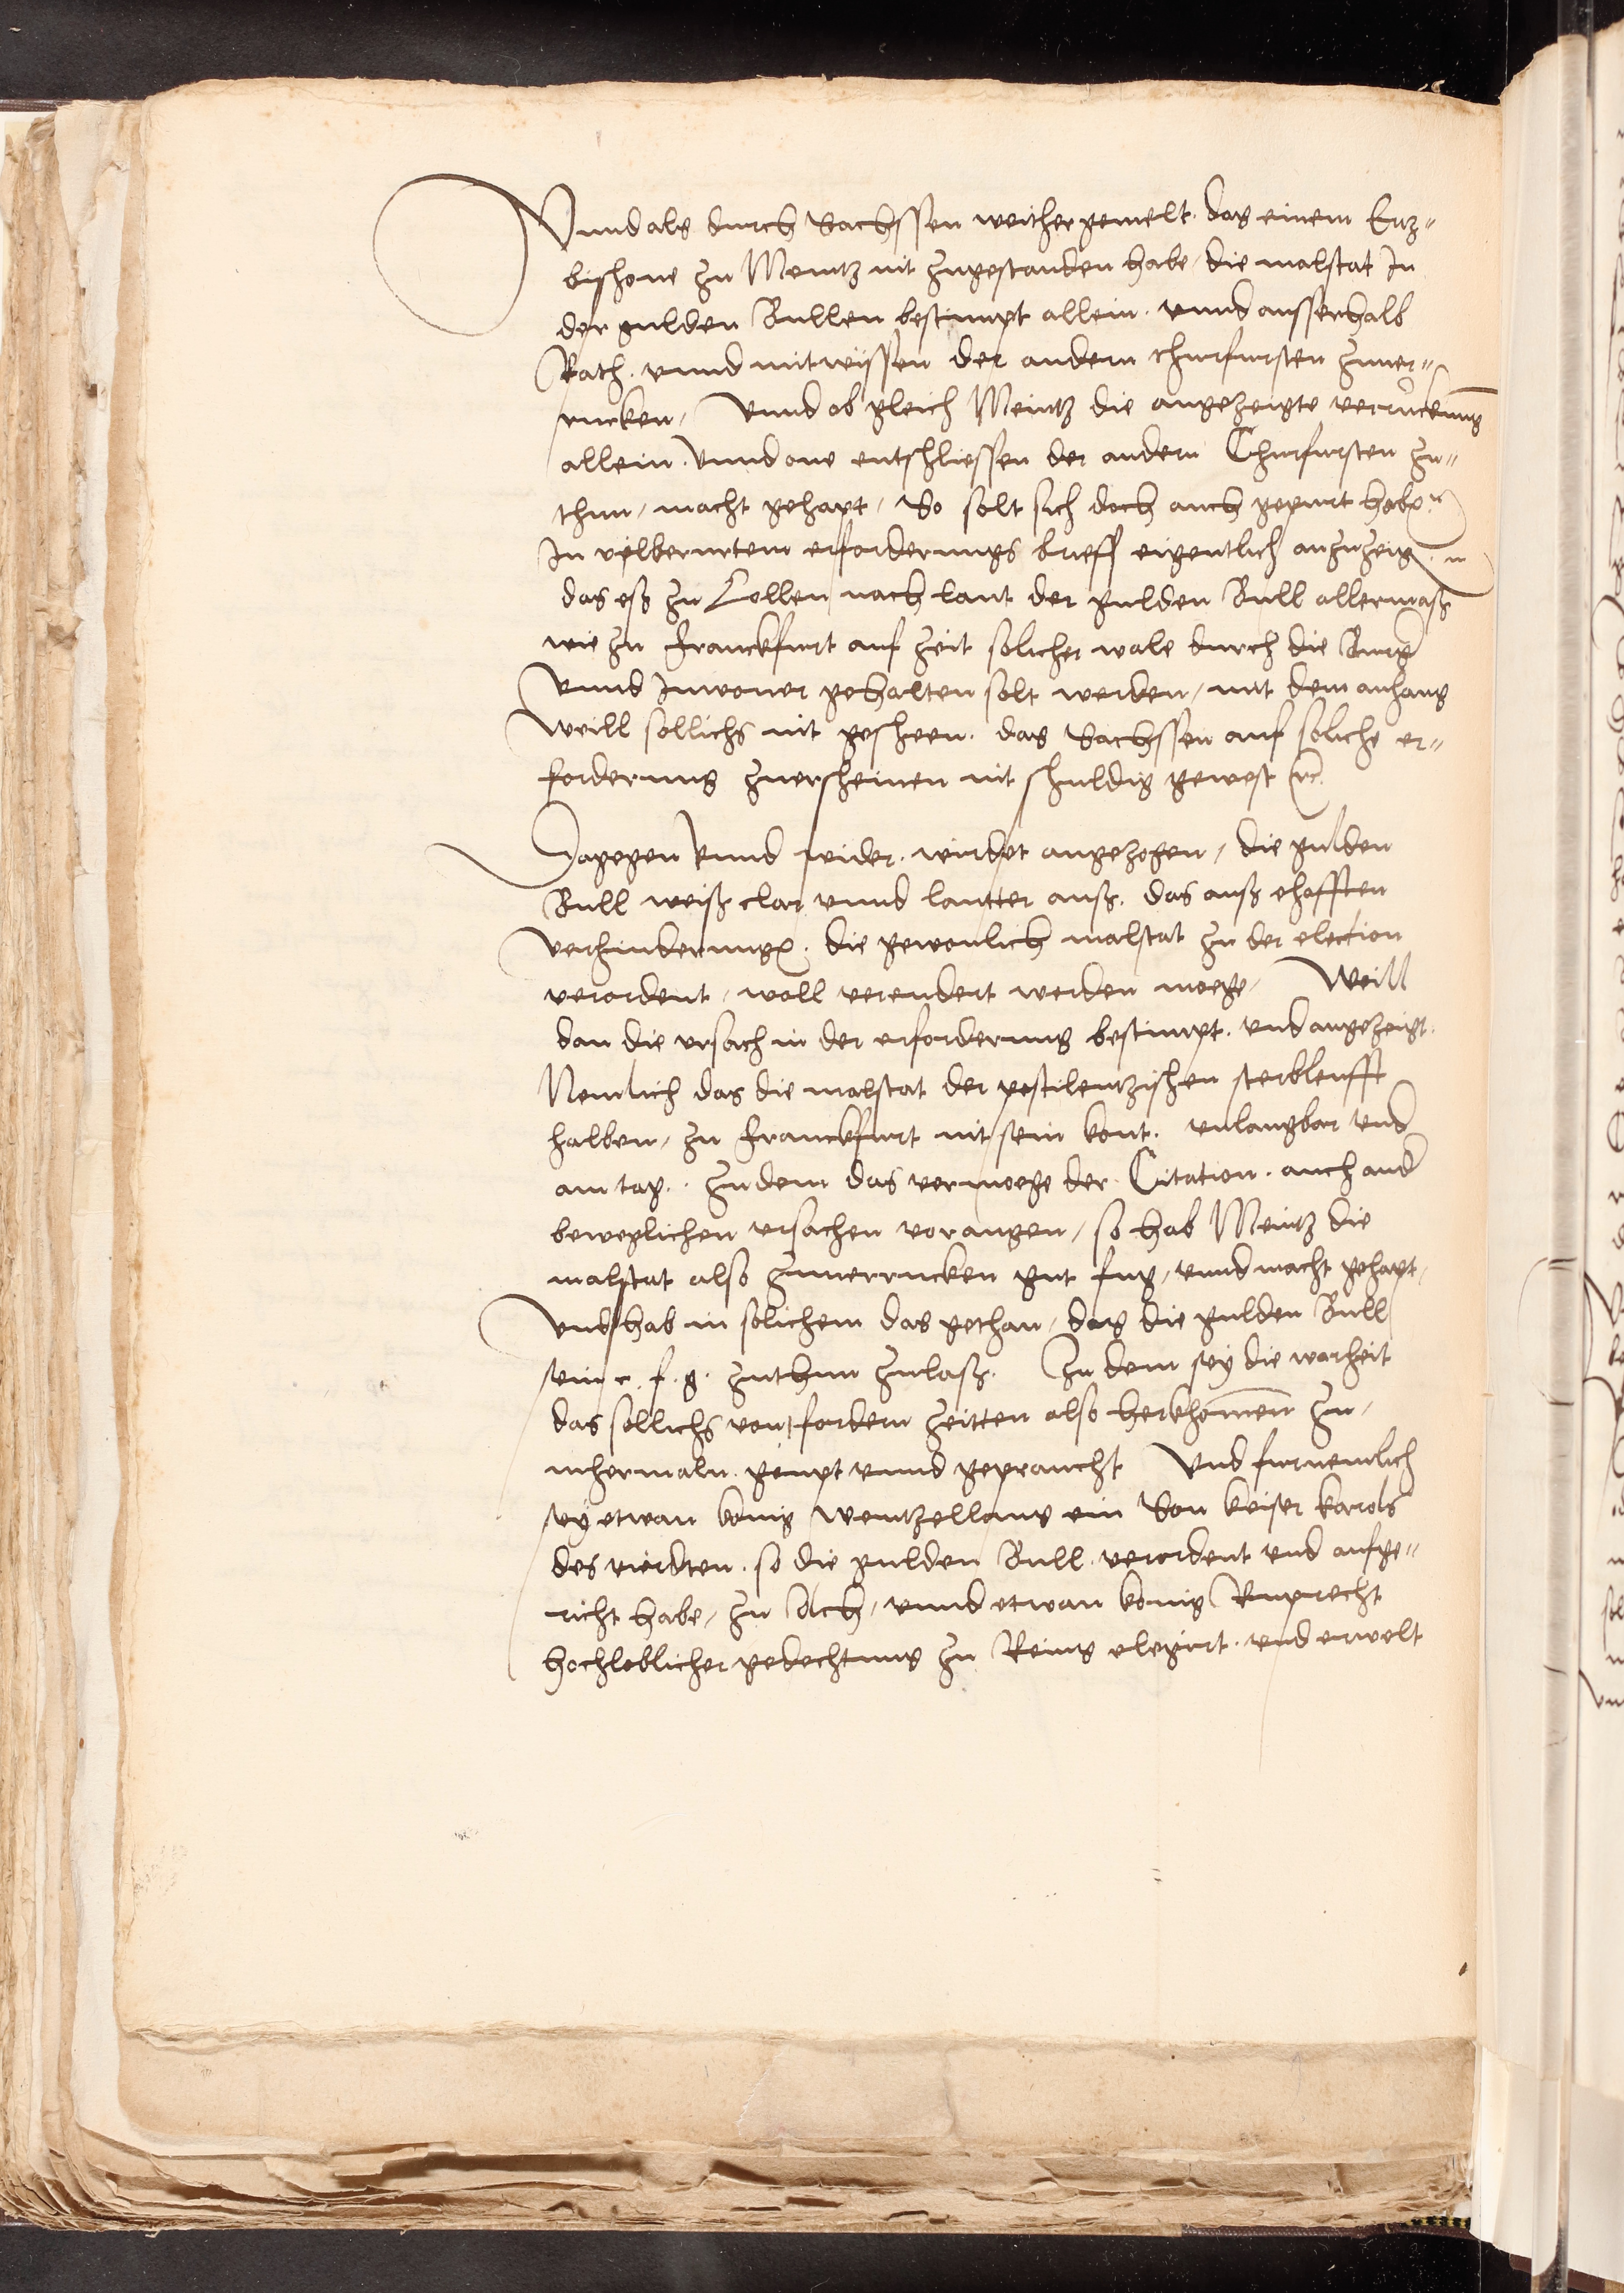 Vnnd als durch Sachssen weither gemelt. das einem Ertz-
bishoue zu Mentz nit zugestanden habe / die malstat In
der gulden Bullen bestimpt allein. vnnd ausserhalb
Rath. vnnd mitwissen der andern churfursten zuuer-
rucken / Vnnd ob gleich Meintz die angezeigte verruckung
allein. Vnnd one entschliessen der andern Churfursten zu-
thun / macht gehapt / So solt sich doch auch gepurt haben
In vilberurtem erforderungs brieff eigentlich anzuzeigen
das esz zu Collen nach laut der gulden Bull allermasz
wie zu Franckfurt auf zeit solicher wale durch die Burger
Vnnd Inwoner gehalten solt werden / mit dem anhang
Weill sollichs nit gesheen. das Sachssen auf soliche er-
forderung zuersheinen nit shuldig gewest etc.
Dagegen vnnd wider. wirdet angezogen / die gulden
Bull weisz clar vnnd lautter ausz. das ausz ehafften
verhinderungen. die gewonlich malstat zu der election
verordent / woll verendert werden moege / Weill
dan die vrsach in der erforderung bestimpt. vnd angezeigt.
Nemlich das die malstat der pestilentzishen sterbleufft
halben / zu Franckfurt nit sein kont. vnlaugbar vnd
am tag. Zudem das vermoege der Citation. auch ander
beweglichen vrsachen vorangen / so hab Meintz die
malstat also zuuerrucken gut fug / vnnd macht gehapt /
Vnd hab in solichem das gethan / das die gulden Bull
sein c. f. g. zuthun zulasz. Zu dem sey die warheit
das sollichs von fordern zeitten also herkhomen zu /
mhermaln. geupt vnnd gepraucht Vnd furnemlich
sey etwan konig Wentzellaus ein Son keiser karols
des vierdten. so die gulden Bull. verordent vnd aufge-
richt habe / zu Ach / vnnd etwan konig Ruprecht
hochloblicher gedechtnus zu Reins elegirt. vnd erwelt